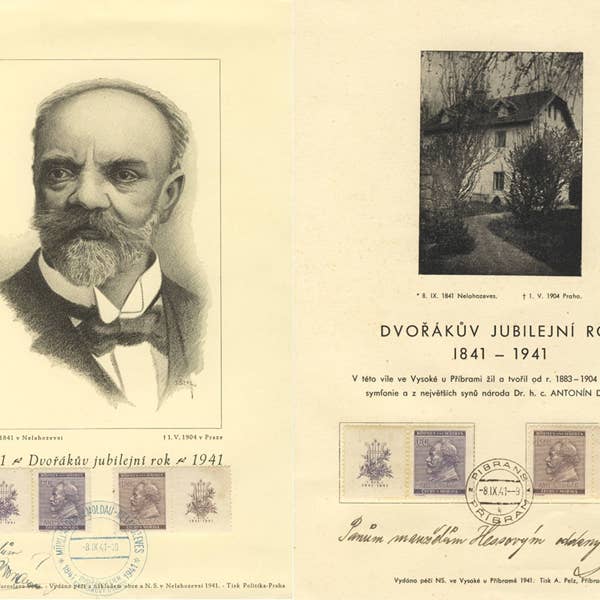 1841 v Nelahozevsi † 1. V. 1904 v Praze
1 Dvořákův jubilejní rok 1941
MOLDAU
-8.IX.41-10
Vydáno péčí a nákladem obce a N. S. v Nelahozevsi 1941. - Tisk Politika-Praha
* 8. IX. 1841 Nelahozeves. † 1. V. 1904 Praha.
DVOŘÁKŮV JUBILEJNÍ RO
1841 – 1941
V této vile ve Vysoké u Příbrami žil a tvořil od r. 1883–1904
symfonie a z největších synů národa Dr. h. c. ANTONÍN D
PIBRANS
-8.IX.41-9
PŘÍBRAM
Pánům manželům Hessovým oddaný
Vydáno péčí NS. ve Vysoké u Příbramě 1941. Tisk A. Pelz, Příbram